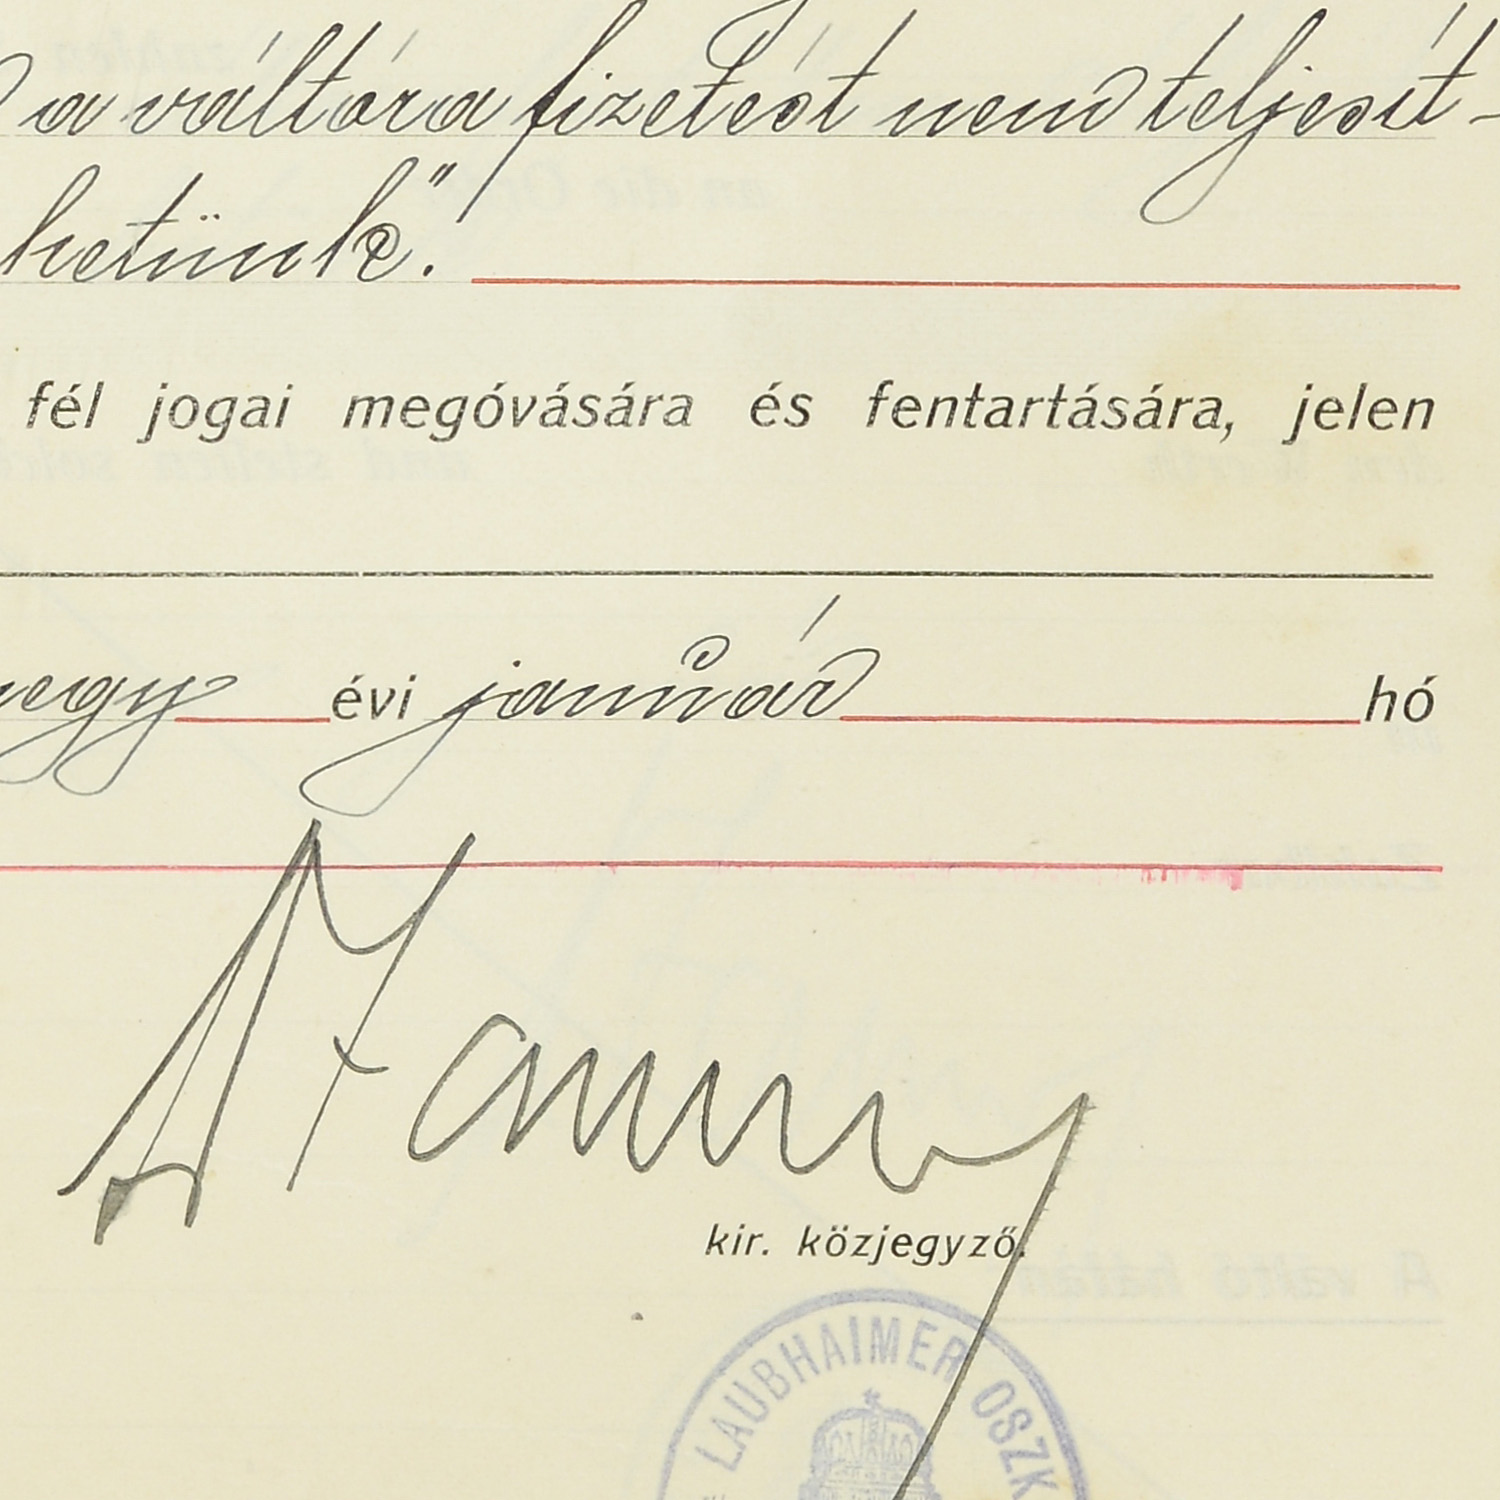 a váltóra fizetést nem teljesít-
hetünk".
fél jogai megóvására és fentartására, jelen
egy évi január hó
kir. közjegyző.
LAUBHAIMER OSZK